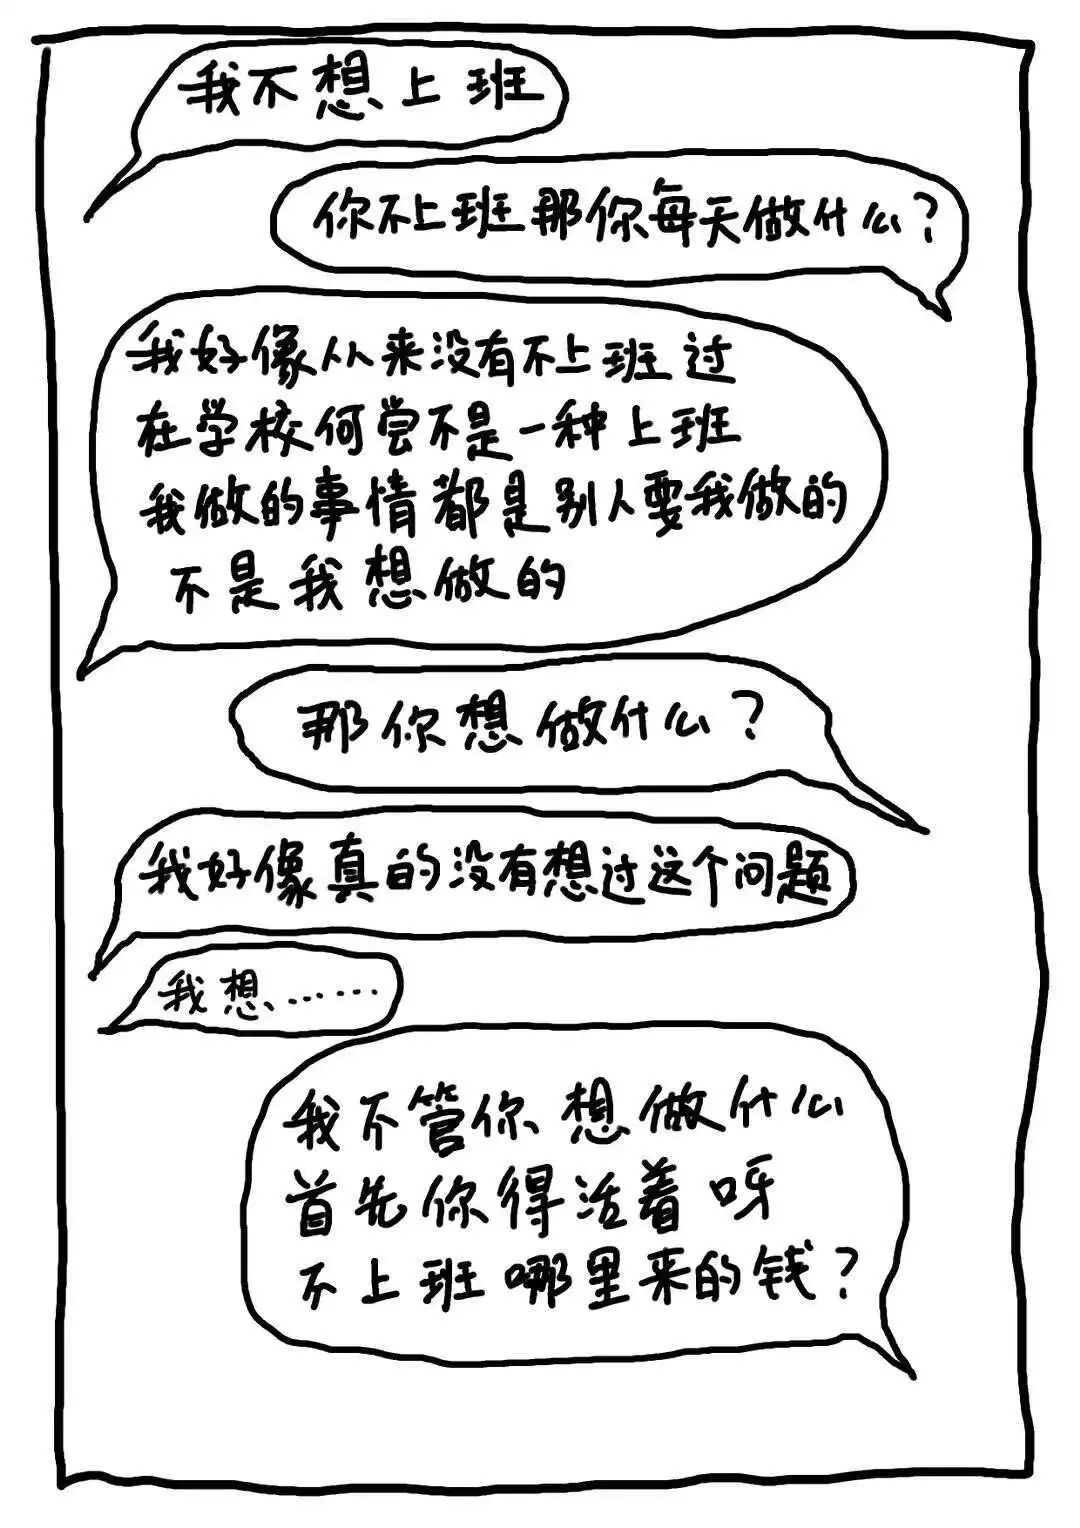 我不想上班
你不上班那你每天做什么?
我好像从来没有不上班过
在学校何尝不是一种上班
我做的事情都是别人要我做的
不是我想做的
那你想做什么?
我好像真的没有想过这个问题
我想……
我不管你想做什么
首先你得活着呀
不上班哪里来的钱?